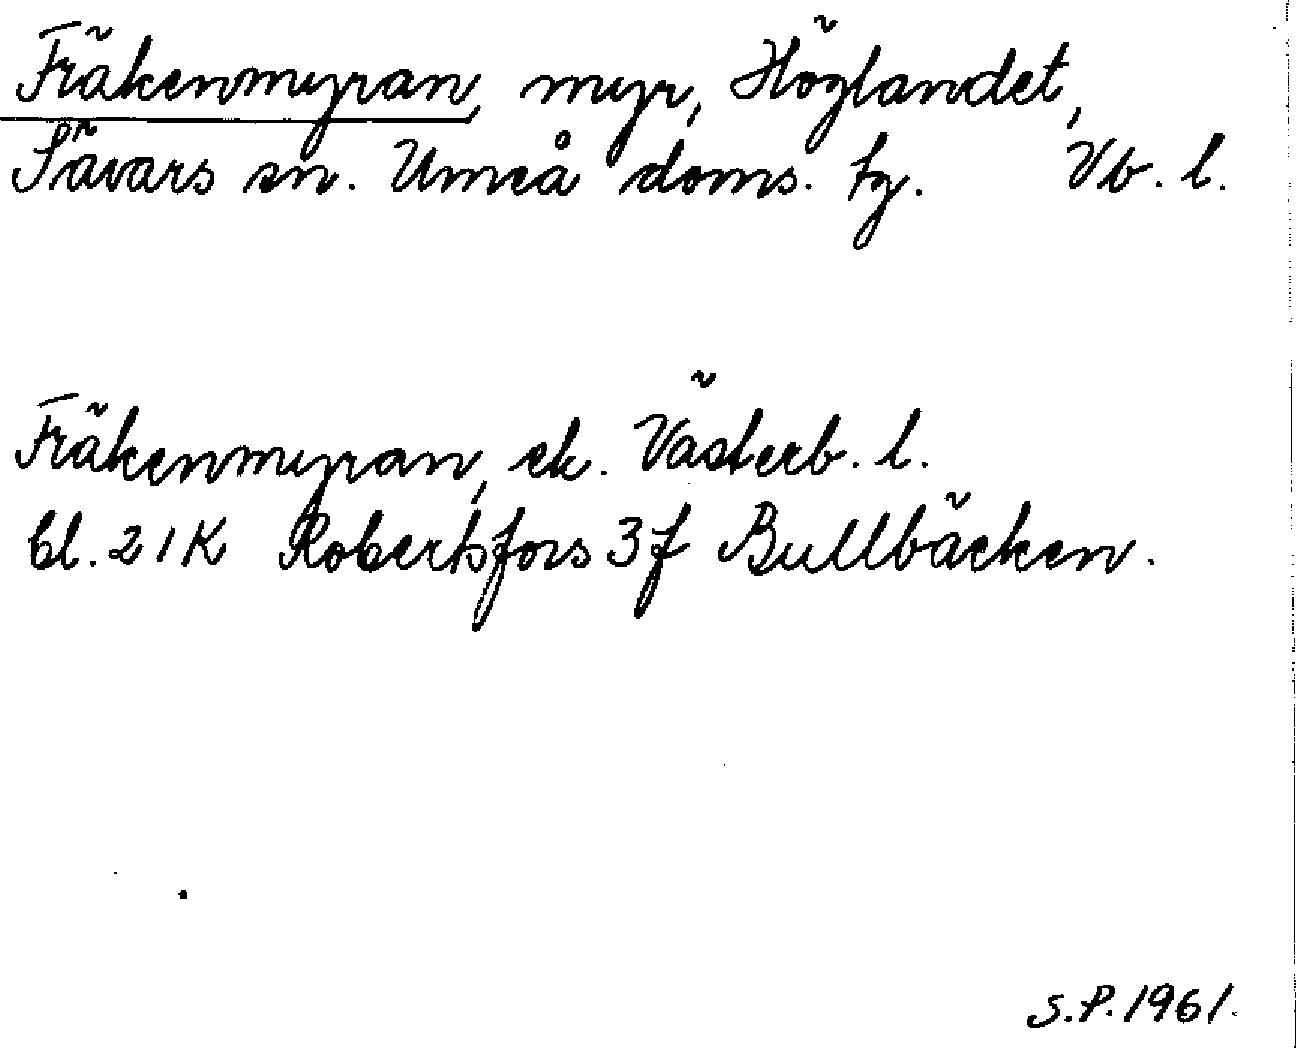 Fräkenmyran, myr, Höglandet,
Sävars sn. Umeå doms. tg. Vb. l.
Fräkenmyran, ek. Västerb. l.
bl. 21K Robertsfors 3f Bullbäcken.
S.P. 1961.